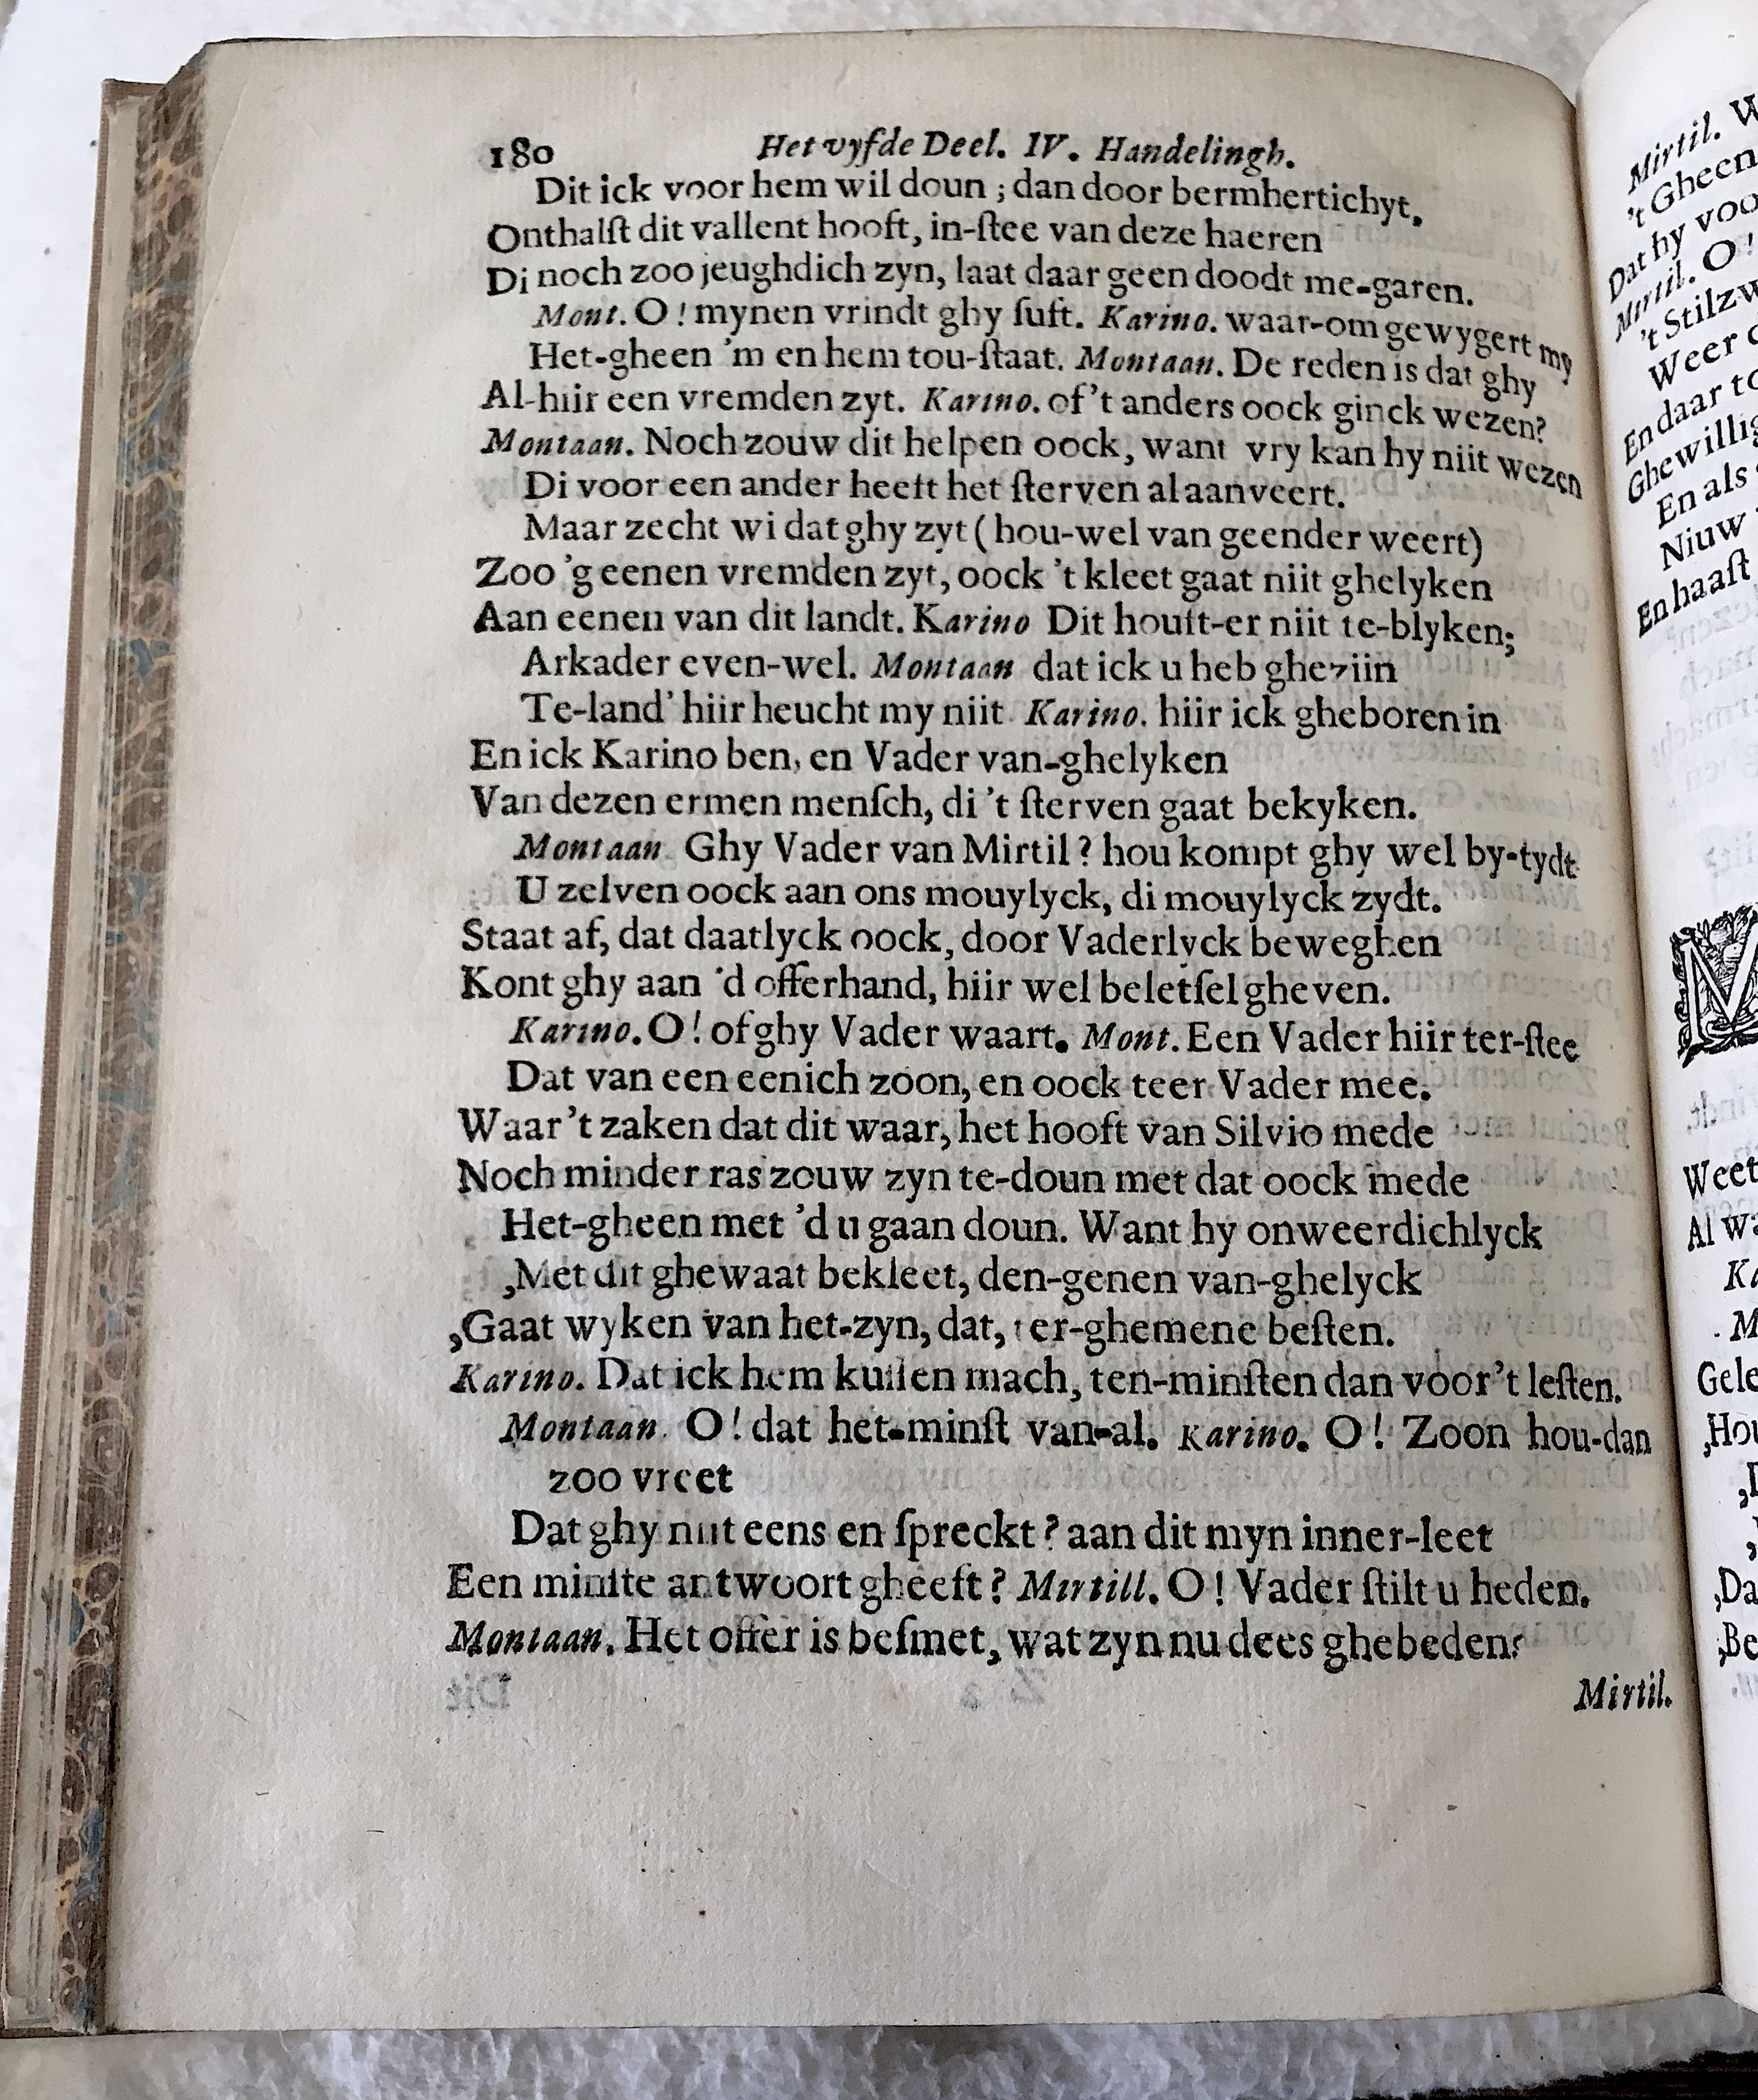 180 Het vyfde Deel. IV. Handelingh.
Dit ick voor hem wil doun ; dan door bermhertichyt,
Onthalſt dit vallent hooft, in-ſtee van deze haeren
Di noch zoo jeughdich zyn, laat daar geen doodt me-garen.
Mont. O ! mynen vrindt ghy ſuft. Karino. waar-om gewygert my
Het-gheen 'm en hem tou-ſtaat. Montaan. De reden is dat ghy
Al-hiir een vremden zyt. Karino. of 't anders oock ginck wezen?
Montaan. Noch zouw dit helpen oock, want vry kan hy niit wezen
Di voor een ander heeft het ſterven al aanveert.
Maar zecht wi dat ghy zyt ( hou-wel van geender weert)
Zoo 'g eenen vremden zyt, oock 't kleet gaat niit ghelyken
Aan eenen van dit landt. Karino Dit houft-er niit te-blyken;
Arkader even-wel. Montaan dat ick u heb gheziin
Te-land' hiir heucht my niit. Karino. hiir ick gheboren in
En ick Karino ben, en Vader van-ghelyken
Van dezen ermen menſch, di 't ſterven gaat bekyken.
Montaan. Ghy Vader van Mirtil ? hou kompt ghy wel by-tydt
U zelven oock aan ons mouylyck, di mouylyck zydt.
Staat af, dat daatlyck oock, door Vaderlyck beweghen
Kont ghy aan 'd offerhand, hiir wel beletſel gheven.
Karino. O ! of ghy Vader waart. Mont. Een Vader hiir ter-ſtee
Dat van een eenich zoon, en oock teer Vader mee.
Waar 't zaken dat dit waar, het hooft van Silvio mede
Noch minder ras zouw zyn te-doun met dat oock mede
Het-gheen met 'd u gaan doun. Want hy onweerdichlyck
,Met dit ghewaat bekleet, den-genen van-ghelyck
,Gaat wyken van het-zyn, dat, ter-ghemene beſten.
Karino. Dat ick hem kuſſen mach, ten-minſten dan voor 't leſten.
Montaan. O ! dat het-minſt van-al. Karino. O ! Zoon hou-dan
zoo vreet
Dat ghy niit eens en ſpreckt ? aan dit myn inner-leet
Een minſte antwoort gheeft ? Mirtill. O ! Vader ſtilt u heden.
Montaan. Het offer is beſmet, wat zyn nu dees ghebeden?
Mirtil.
Mirtil. W
't Gheen
Dat hy voo
Mirtil. O !
't Stilzw
Weer
En daar to
Ghewillig
En als
Niuw
En haaſt
M
Weet
Al wa
Ka
M
Gele
,Hou
,Da
,Be